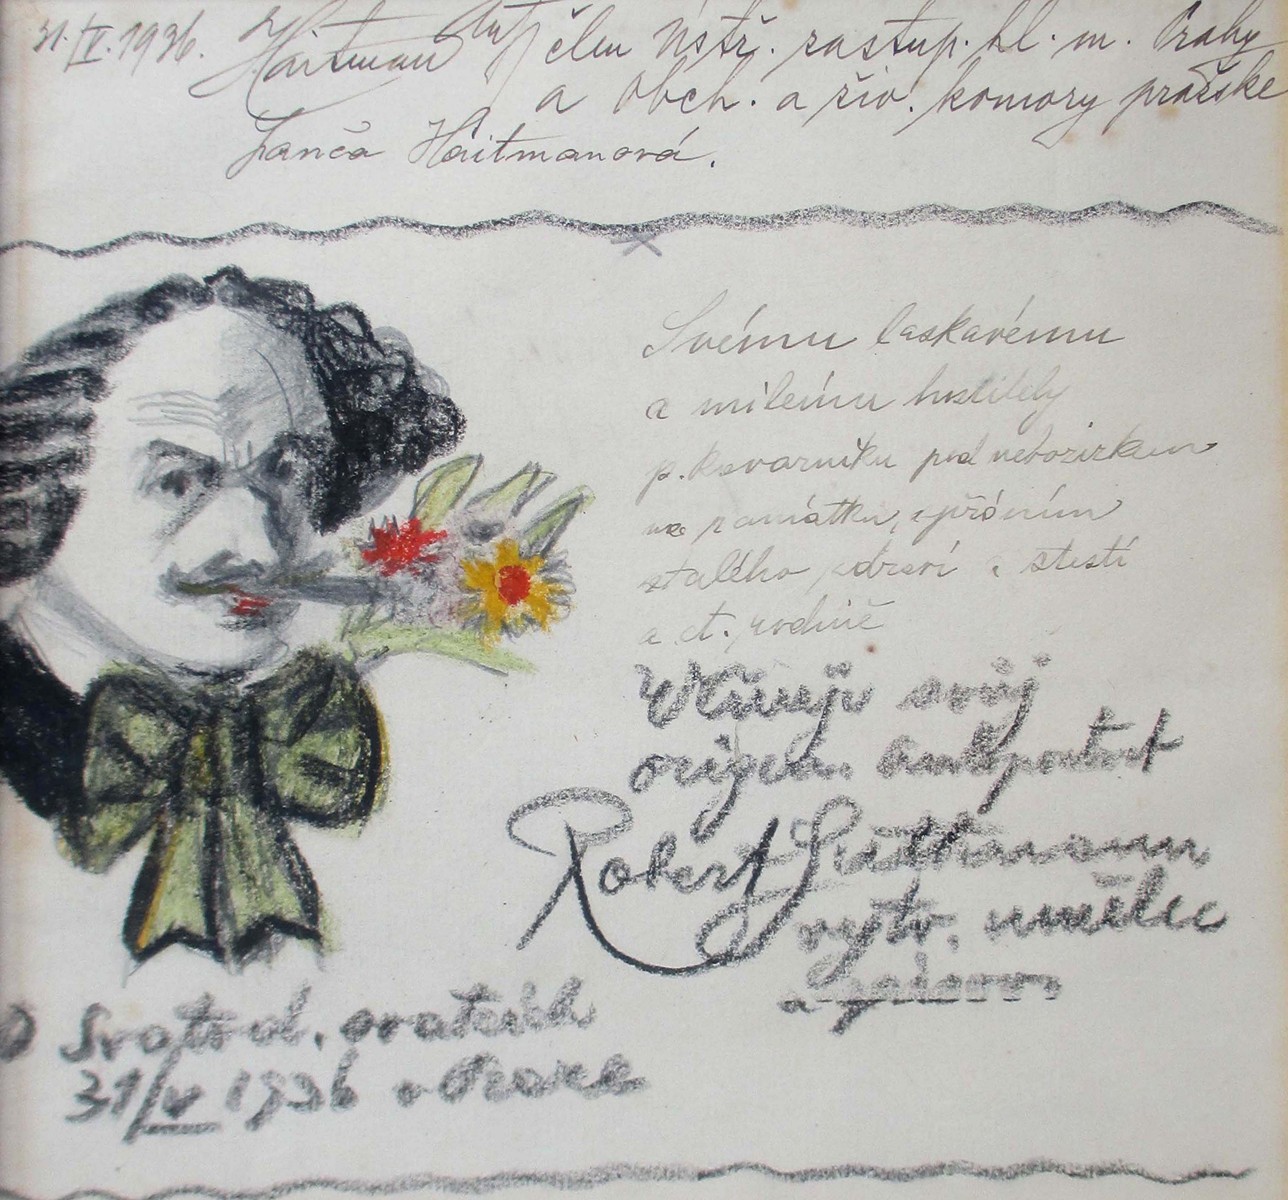 31.V.1936. Haitman Ant čлен Ústř. zastup. hl. m. Prahy
a Obch. a živ. komory pražské
Haitmanová.
Svému laskavému
a milému hostitely
p. kavarníku pod nebozizkem
na památku, s přáním
stalého zdraví a štestí
a ct. rodině
Věnuji svůj
origin. autoportret
Robert Guttmann
výtv. umělec
a
O Svatod.
31/V 1936 v Praze